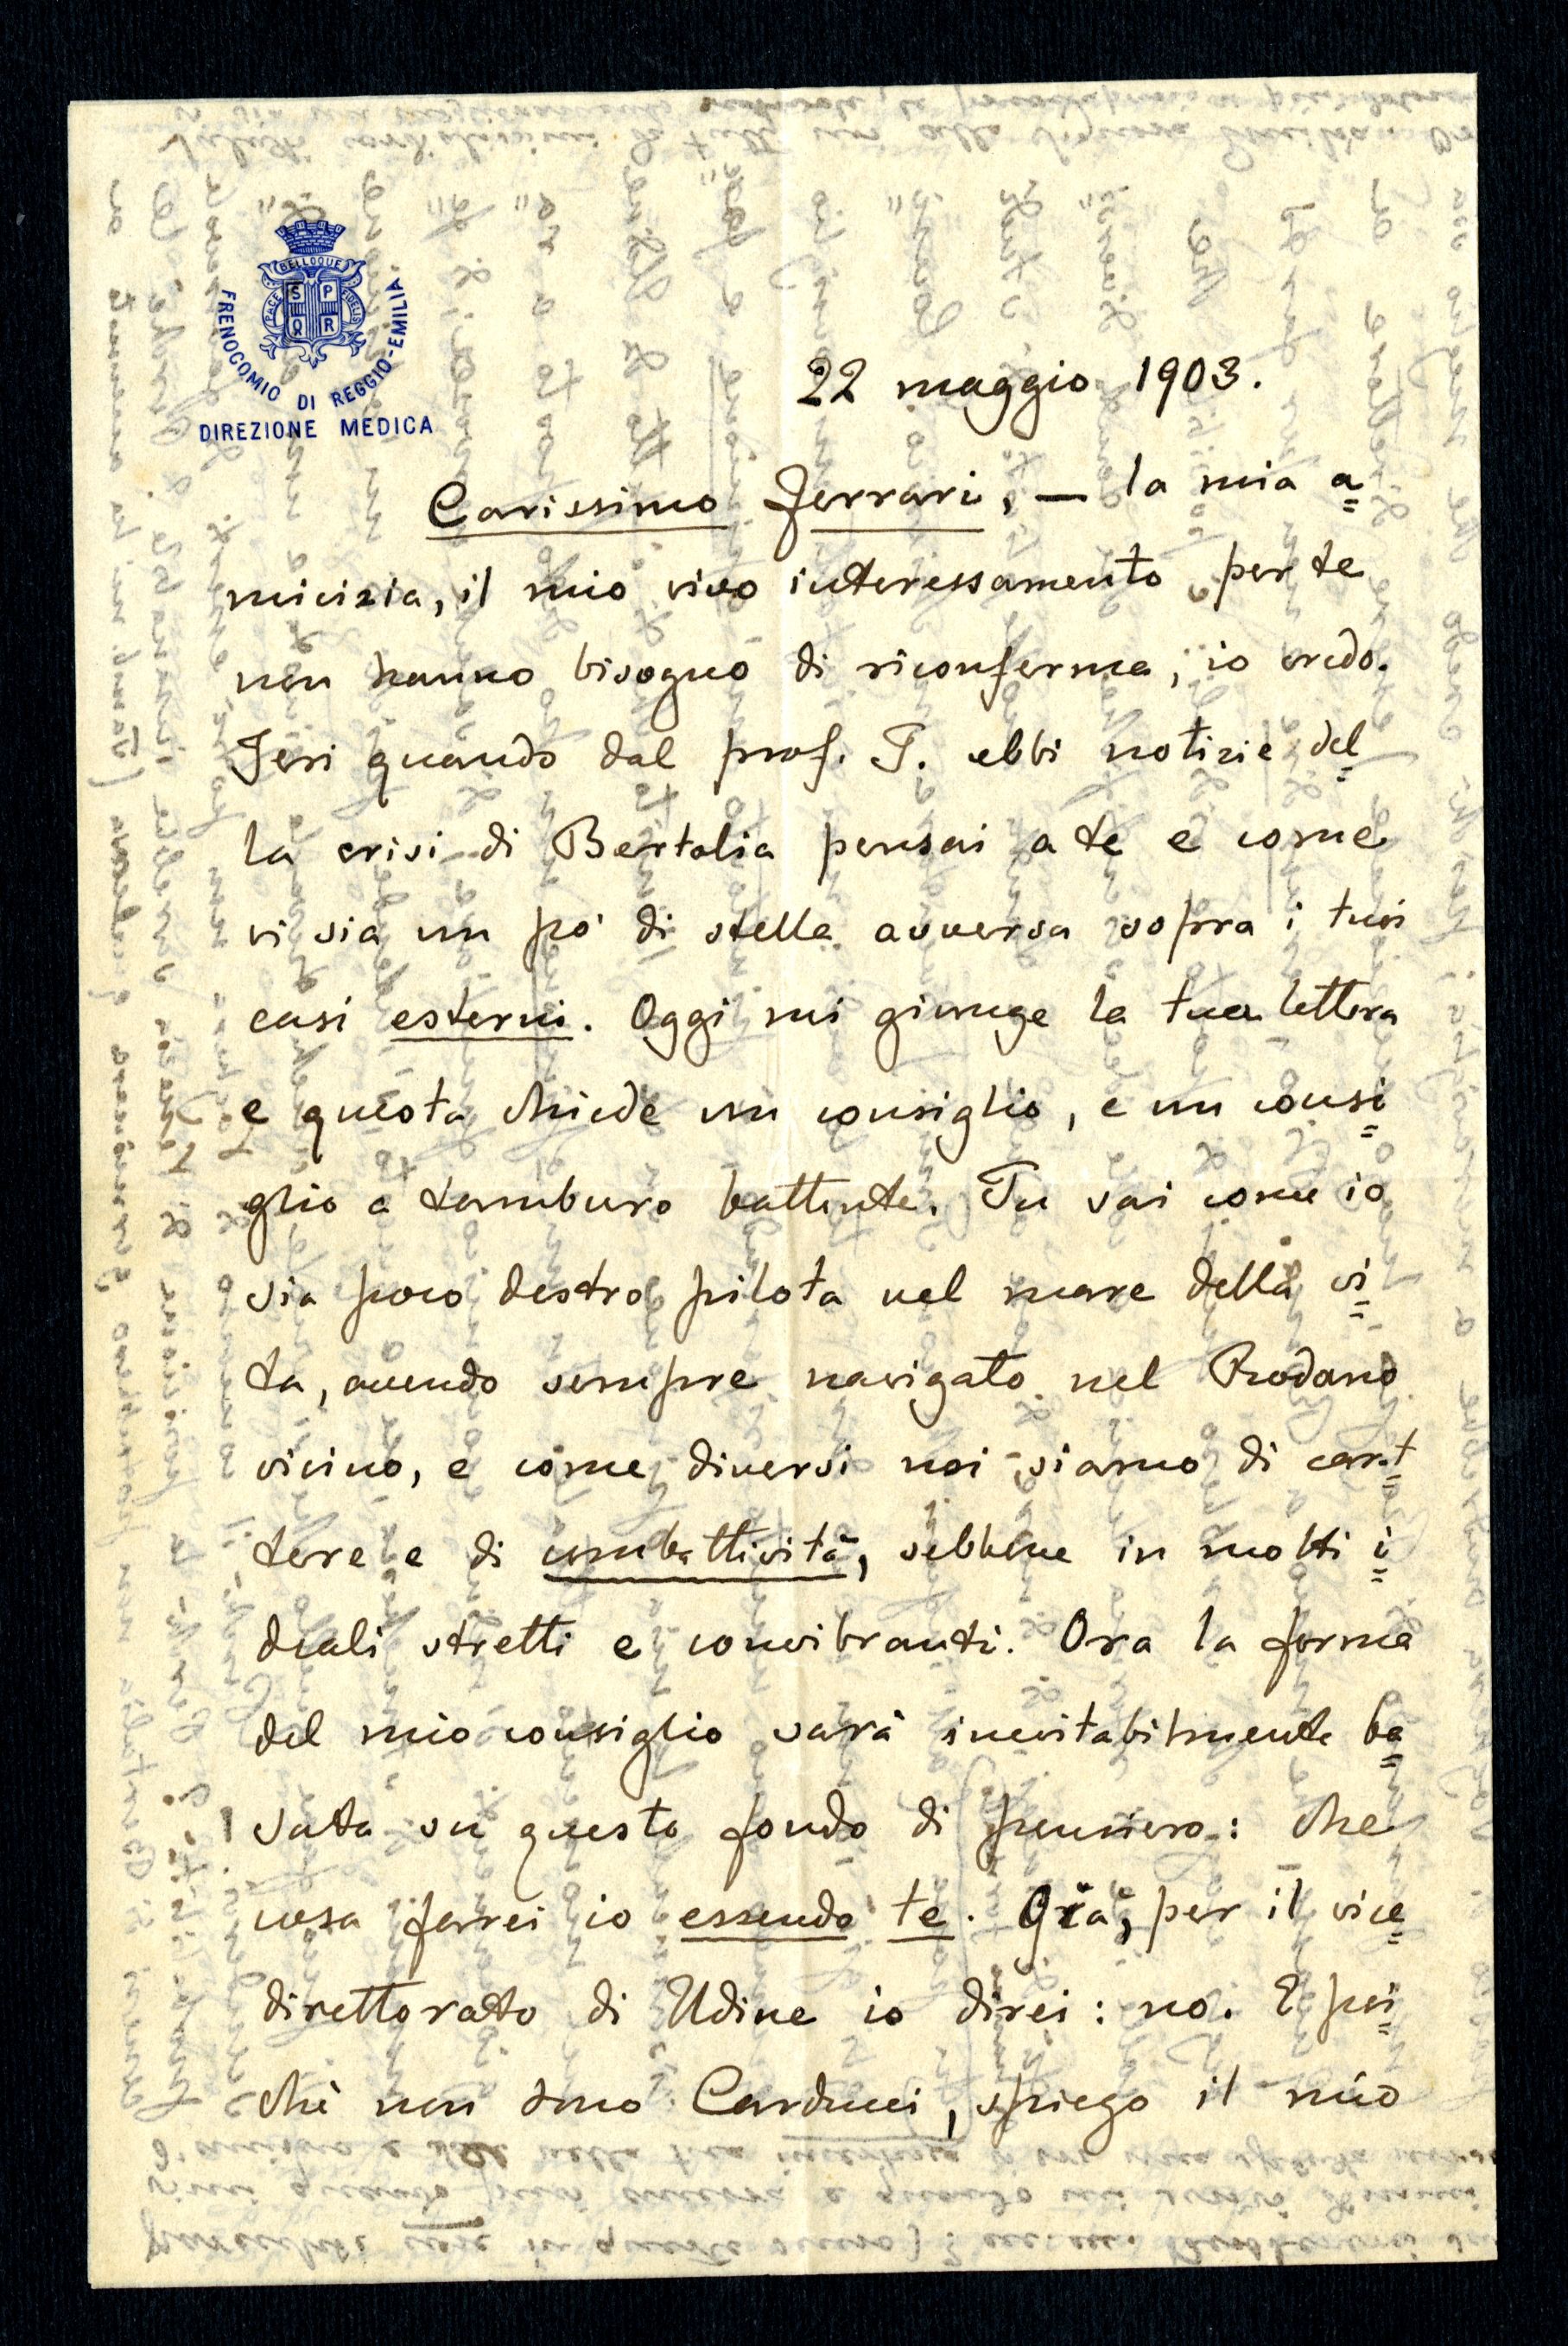 BELLOQUE
PACE
FIDELIS
S P
Q R
FRENOCOMIO DI REGGIO-EMILIA
DIREZIONE MEDICA
22 maggio 1903.
Carissimo Ferrari, — la mia a=
micizia, il mio vivo interessamento per te
non hanno bisogno di riconferma, io credo.
Jeri quando dal prof. T. ebbi notizie del=
la crisi di Bertalia pensai a te e come
vi sia un po' di stella avversa sopra i tuoi
casi esterni. Oggi mi giunge la tua lettera
e questa chiede un consiglio, e un consi=
glio a tamburo battente. Tu sai come io
sia poco destro pilota nel mare della vi=
ta, avendo sempre navigato nel Rodano
vicino, e come diversi noi siamo di carat=
tere e di combattività, sebbene in molti i=
deali stretti e convibranti. Ora la forma
del mio consiglio sarà inevitabilmente ba=
sata su questo fondo di pensiero: che
cosa farei io essendo te. per il vice=
direttorato di Udine io direi: no. E poi=
chè non sono Carducci, spiego il mio